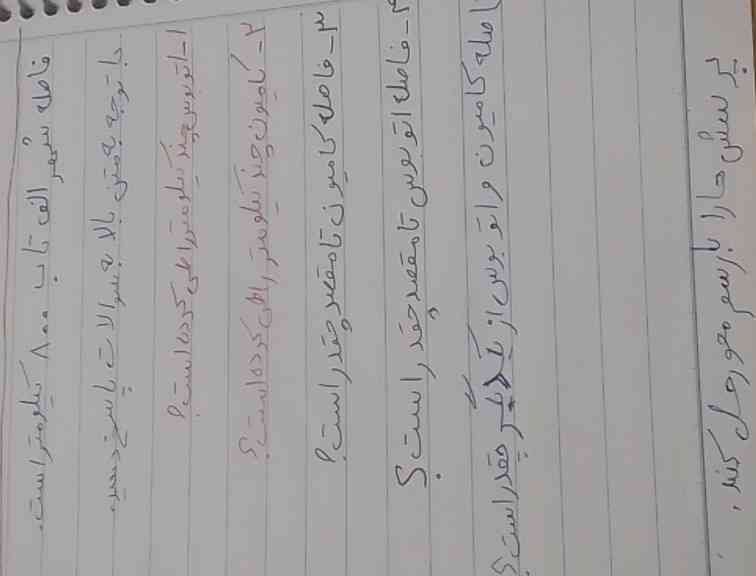 فاصله شهر الف تا ب ۸۰۰ کیلومتر است.
با توجه به متن بالا به سوالات پاسخ دهید.
۱- اتوبوس چند کیلومتر را طی کرده است؟
۲- کامیون چند کیلومتر را طی کرده است؟
۳- فاصله کامیون تا مقصد چقدر است؟
۴- فاصله اتوبوس تا مقصد چقدر است؟
فاصله کامیون و اتوبوس از یکدیگر چقدر است؟
پرسش ها را با رسم محور حل کنند.